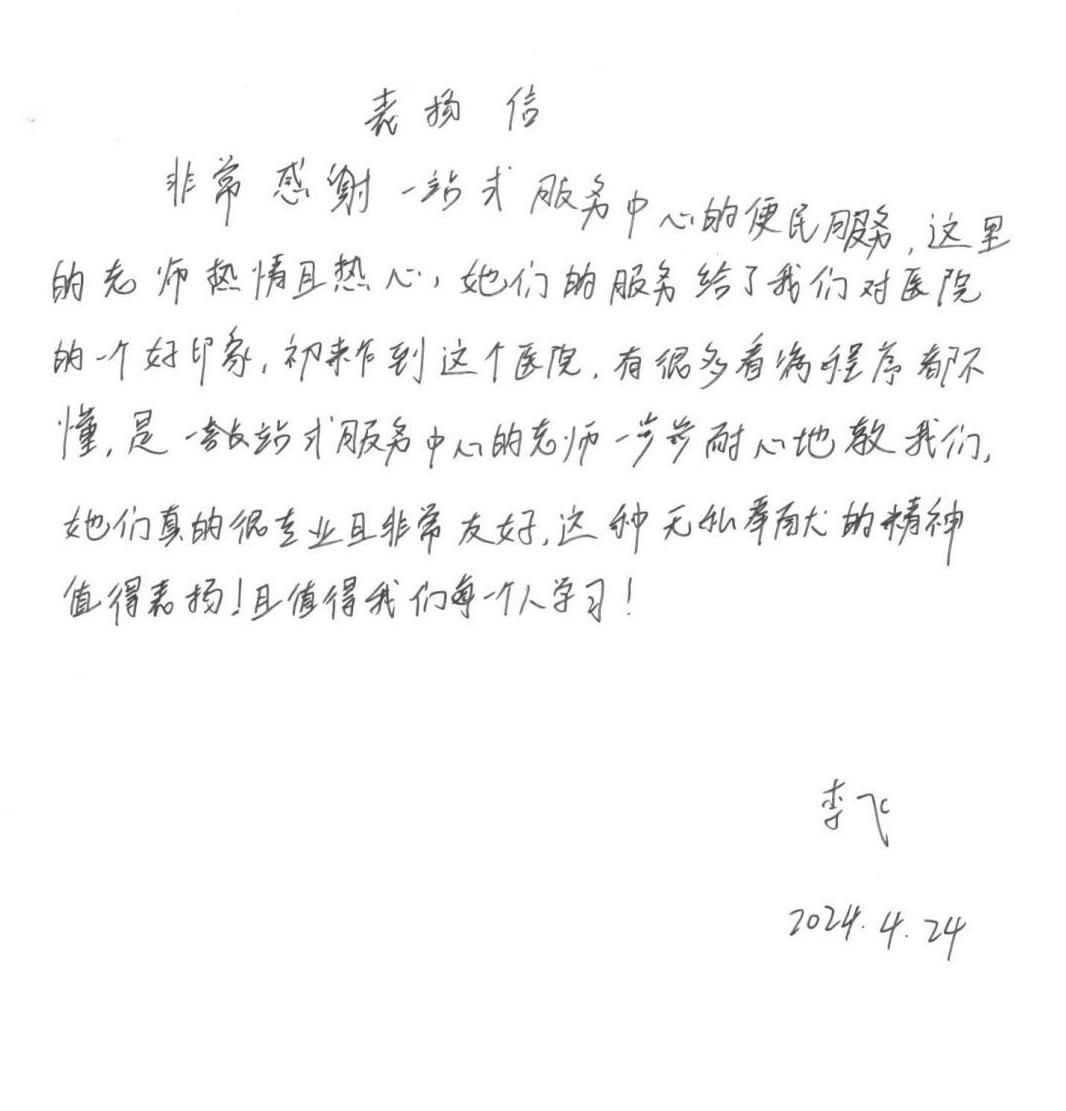 表扬信
非常感谢一站式服务中心的便民服务,这里
的老师热情且热心,她们的服务给了我们对医院
的一个好印象,初来乍到这个医院,有很多看病程序都不
懂,是一站式服务中心的老师一步步耐心地教我们,
她们真的很专业且非常友好,这种无私奉献的精神
值得表扬!且值得我们每一个人学习!
李飞
2024.4.24